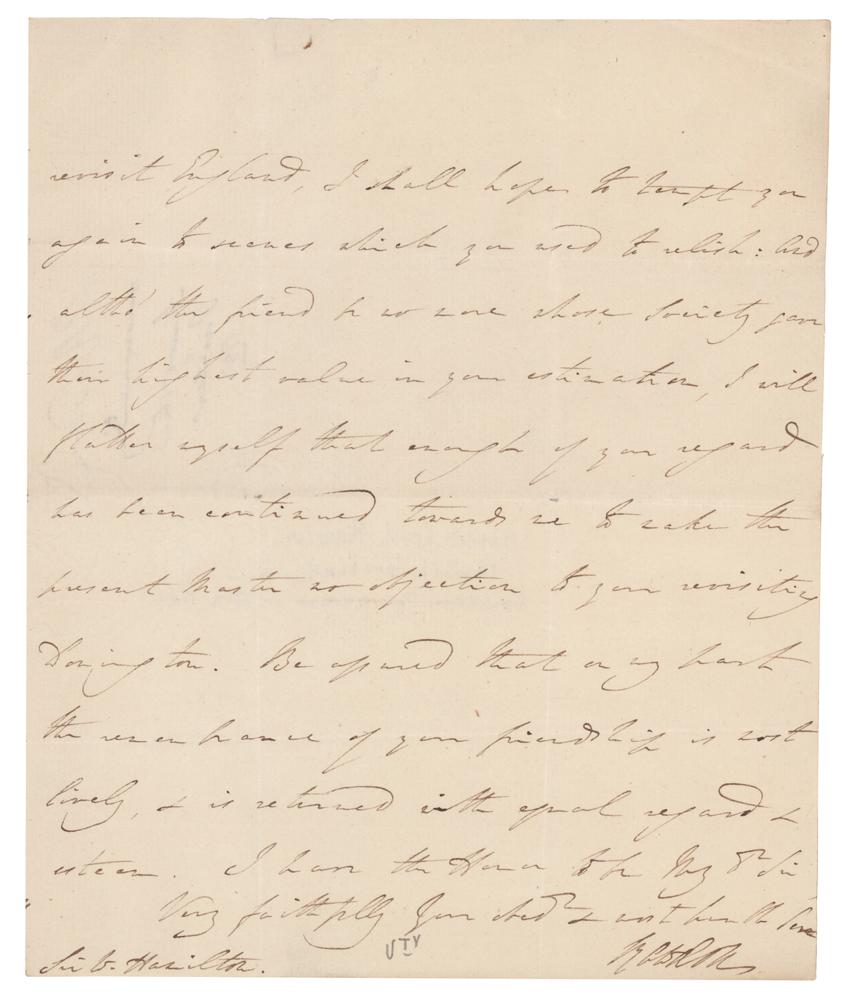 revisit England, I shall hope to tempt you
again to scenes which you used to relish: And
altho' the friend be no more whose Society gave
their highest value in your estimation, I will
flatter myself that enough of your regard
has been continued towards me to make the
present Master no objection to your revisiting
Donington. Be assured that on my part
the remembrance of your friendship is most
lively, & is returned with equal regard &
esteem. I have the Honor to be My Dr Sir
Very faithfully Your obedt & most humble Serv
Sir W. Hamilton.